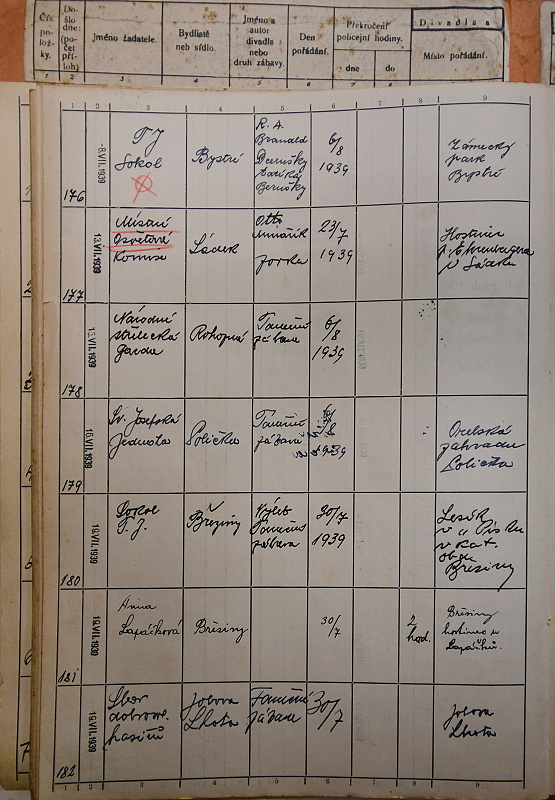 Čís. polož- ky.
Do- šlo dne: (po- čet pří- loh)
Jméno žadatele.
Bydliště neb sídlo.
Jméno a autor divadla nebo druh zábavy.
Den pořádání.
Překročení policejní hodiny.
dne
do
Divadla a
Místo pořádání.
1 2 3 4 5 6 7 8 9
176
-8.VII.1939
TJ
Sokol
Bystré
R. A.
6/8
1939
Zámecký
park
Bystré
177
13.VII.1939
Místní
Osvětová
Komise
Sádek
Otto
Minářik
23/7
1939
Hostinec
p. Ehrenbergera
v Sádku
178
13.VII.1939
Národní
střelecká
garda
Rohozná
Taneční
zábava
6/8
1939
179
16.VII.1939
Sv. Josefská
Jednota
Polička
Taneční
zábava
Orelská
zahrada
Polička
180
19.VII.1939
Sokol
T. J.
Březiny
Výlet
Taneční
zábava
30/7
1939
Lesík
v kat.
obce
Březiny
181
19.VII.1939
Anna
Lapáčková
Březiny
30/7
2
hod.
Březiny
hostinec u
Lapáčků.
182
19.VII.1939
Sbor
dobrovol.
hasičů
Jobova
Lhota
Taneční
zábava
30/7
Jobova
Lhota
1 2 3 4 5 6 7 8 9